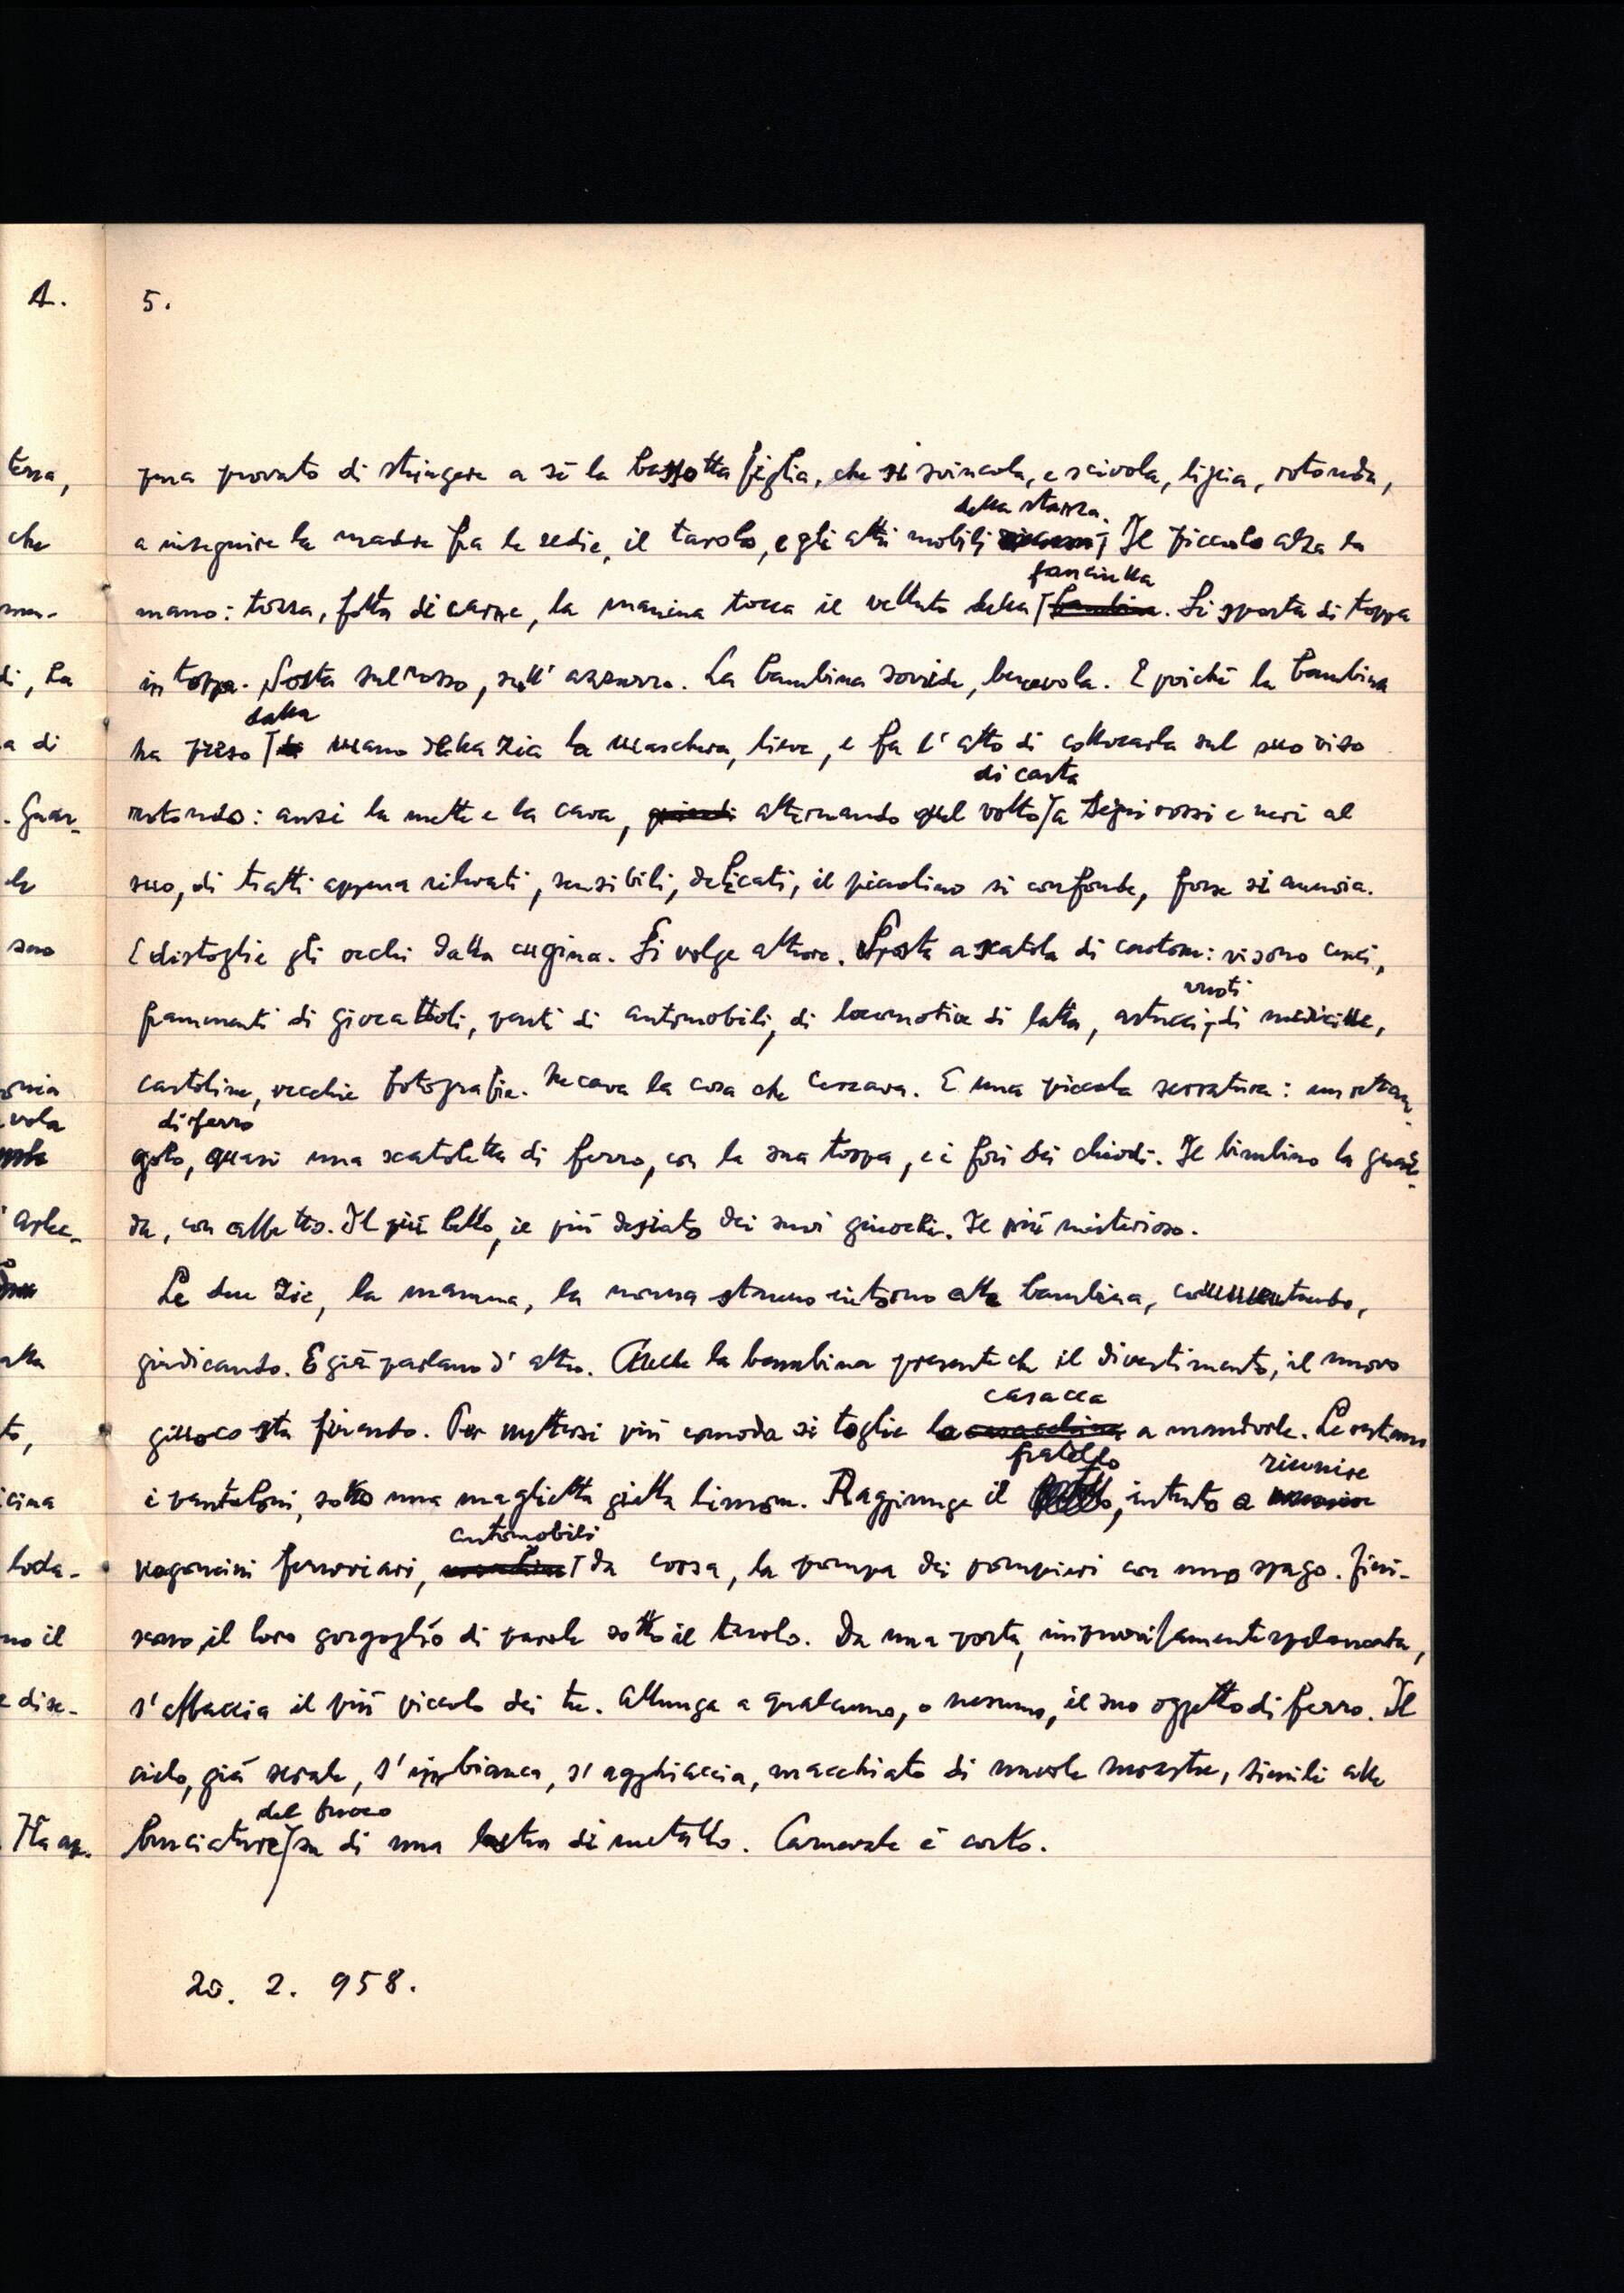 5.
pena provato di stringere a sé la bassotta figlia, che si svincola, e scivola, ligia, rotonda,
della stanza.
a inseguire la madre fra le sedie, il tavolo, e gli altri mobili Il piccolo alza la
fanciulla
mano: tozza, fatta di carne, la manina tocca il velluto della bambina. Si sposta di toppa
in toppa. Sosta sul rosso, sull'azzurro. La bambina sorride, benevola. E poiché la bambina
dalla
ha preso da mano della zia la maschera, lieve, e fa l'atto di collocarla sul suo viso
di carta
rotondo: anzi la mette e la cava, quindi alternando quel volto a segni rossi e neri al
suo, di tratti appena rilevati, sensibili, delicati, il piccolino si confonde, forse si annoia.
E distoglie gli occhi dalla cugina. Si volge altrove. Sposta a scatola di cartone: vi sono cenci,
vuoti
frammenti di giocattoli, parti di automobili, di locomotive di latta, astucci, di medicine,
cartoline, vecchie fotografie. Ne cava la cosa che cercava. È una piccola serratura: un rettan-
di ferro
golo, quasi una scatoletta di ferro, con la sua toppa, e i fori dei chiodi. Il bimbino la guar-
da, con affetto. Il più bello, il più desiato dei suoi giuochi. Il più misterioso.
Le due zie, la mamma, la nonna stanno intorno alla bambina, commentando,
giudicando. E già parlano d'altro. Anche la bambina presente che il divertimento, il nuovo
casacca
giuoco sta finendo. Per mettersi più comoda si toglie la casacchina a mandorle. Le restano
fratello
riunire
i pantaloni, sotto una maglietta gialla limone. Raggiunge il , intento a
automobili
vagoncini ferroviari, macchine da corsa, la pompa dei pompieri con uno spago. Fini-
scono il loro gorgoglio di parole sotto il tavolo. Da una porta, improvvisamente spalancata,
s'affaccia il più piccolo dei tre. Allunga a qualcuno, o nessuno, il suo oggetto di ferro. Il
cielo, già serale, s'imbianca, s'agghiaccia, macchiato di nuvole nerastre, simili alle
del fuoco
bruciature su di una lastra di metallo. Carnevale è corto.
20. 2. 958.